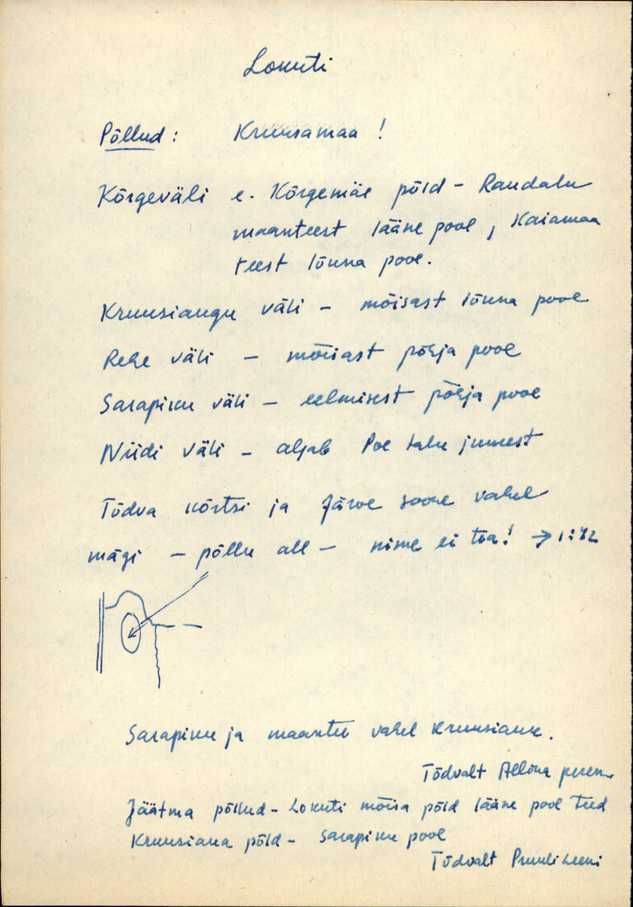 Lokuti
Põllud: Kruusamaa!
Kõrgeväli e. Kõrgemäe põld - Raudalu
maanteest lääne pool, Kaiamaa
teest lõuna pool.
Kruusiaugu väli - mõisast lõuna pool
Rehe väli - mõisast põhja pool
Sarapiku väli - eelmisest põhja pool
Niidi väli - algab Poe talu juurest
Tõdva kõrtsi ja Järve soone vahel
mägi - põllu all - nime ei tea! → 1:42
Sarapiku ja maantee vahel kruusiauk.
Tõdvalt Allika
Jäätma põllud - Lokuti mõisa põld lääne pool teed
Kruusiaua põld - Sarapiku pool
Tõdvalt Pruuli Leeni